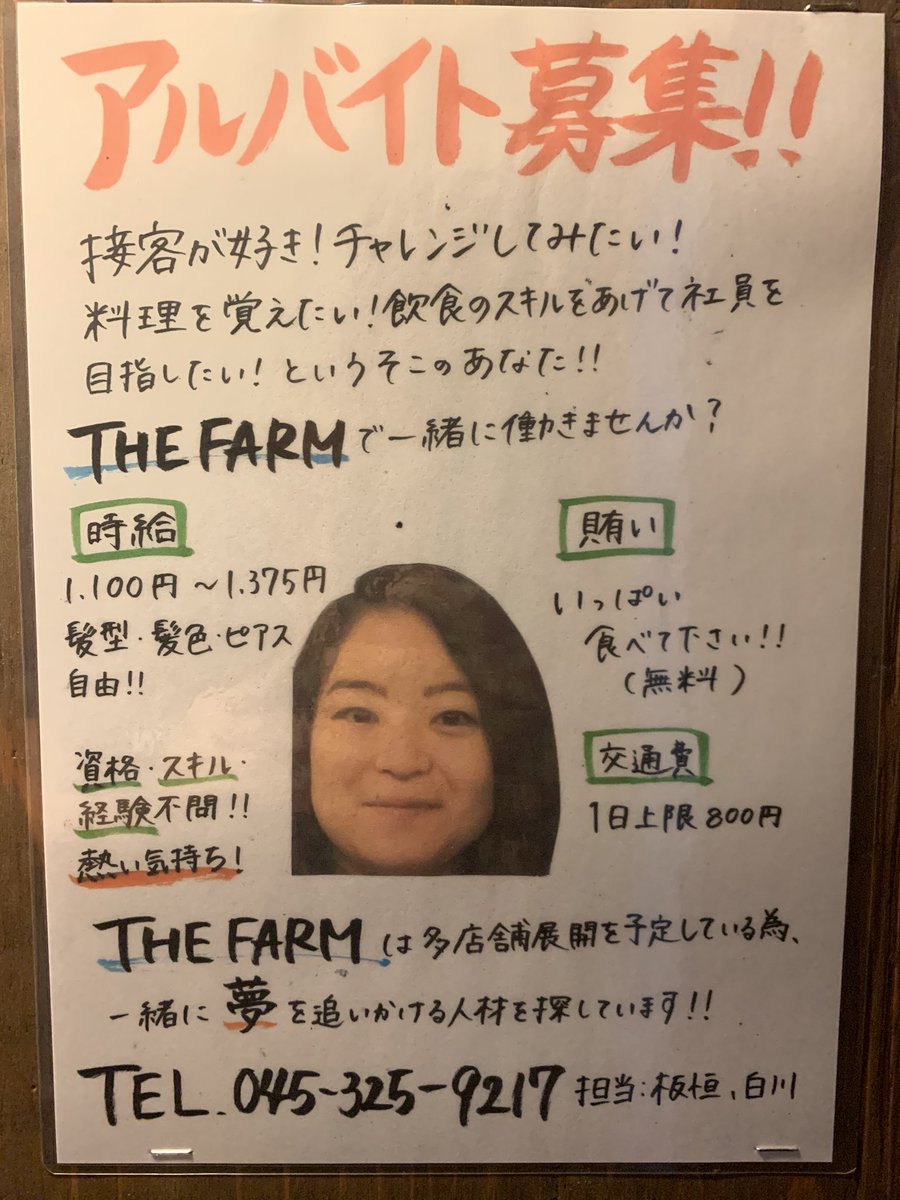 アルバイト募集!!
接客が好き!チャレンジしてみたい!
料理を覚えたい!飲食のスキルをあげて社員を
目指したい!というそこのあなた!!
THE FARMで一緒に働きませんか?
時給
1.100円〜1.375円
髪型・髪色・ピアス
自由!!
資格・スキル・
経験不問!!
熱い気持ち!
賄い
いっぱい
食べて下さい!!
(無料)
交通費
1日上限800円
THE FARMは多店舗展開を予定している為、
一緒に夢を追いかける人材を探しています!!
TEL.045-325-9217 担当:板恒、白川